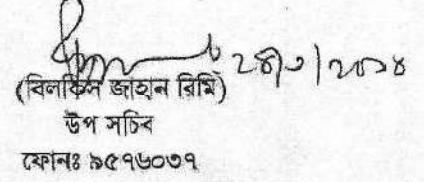 ২৪/৩/২০১৪
(বিলকিস জাহান রিমি)
উপ সচিব
ফোনঃ ৯৫৭৬০৩৭